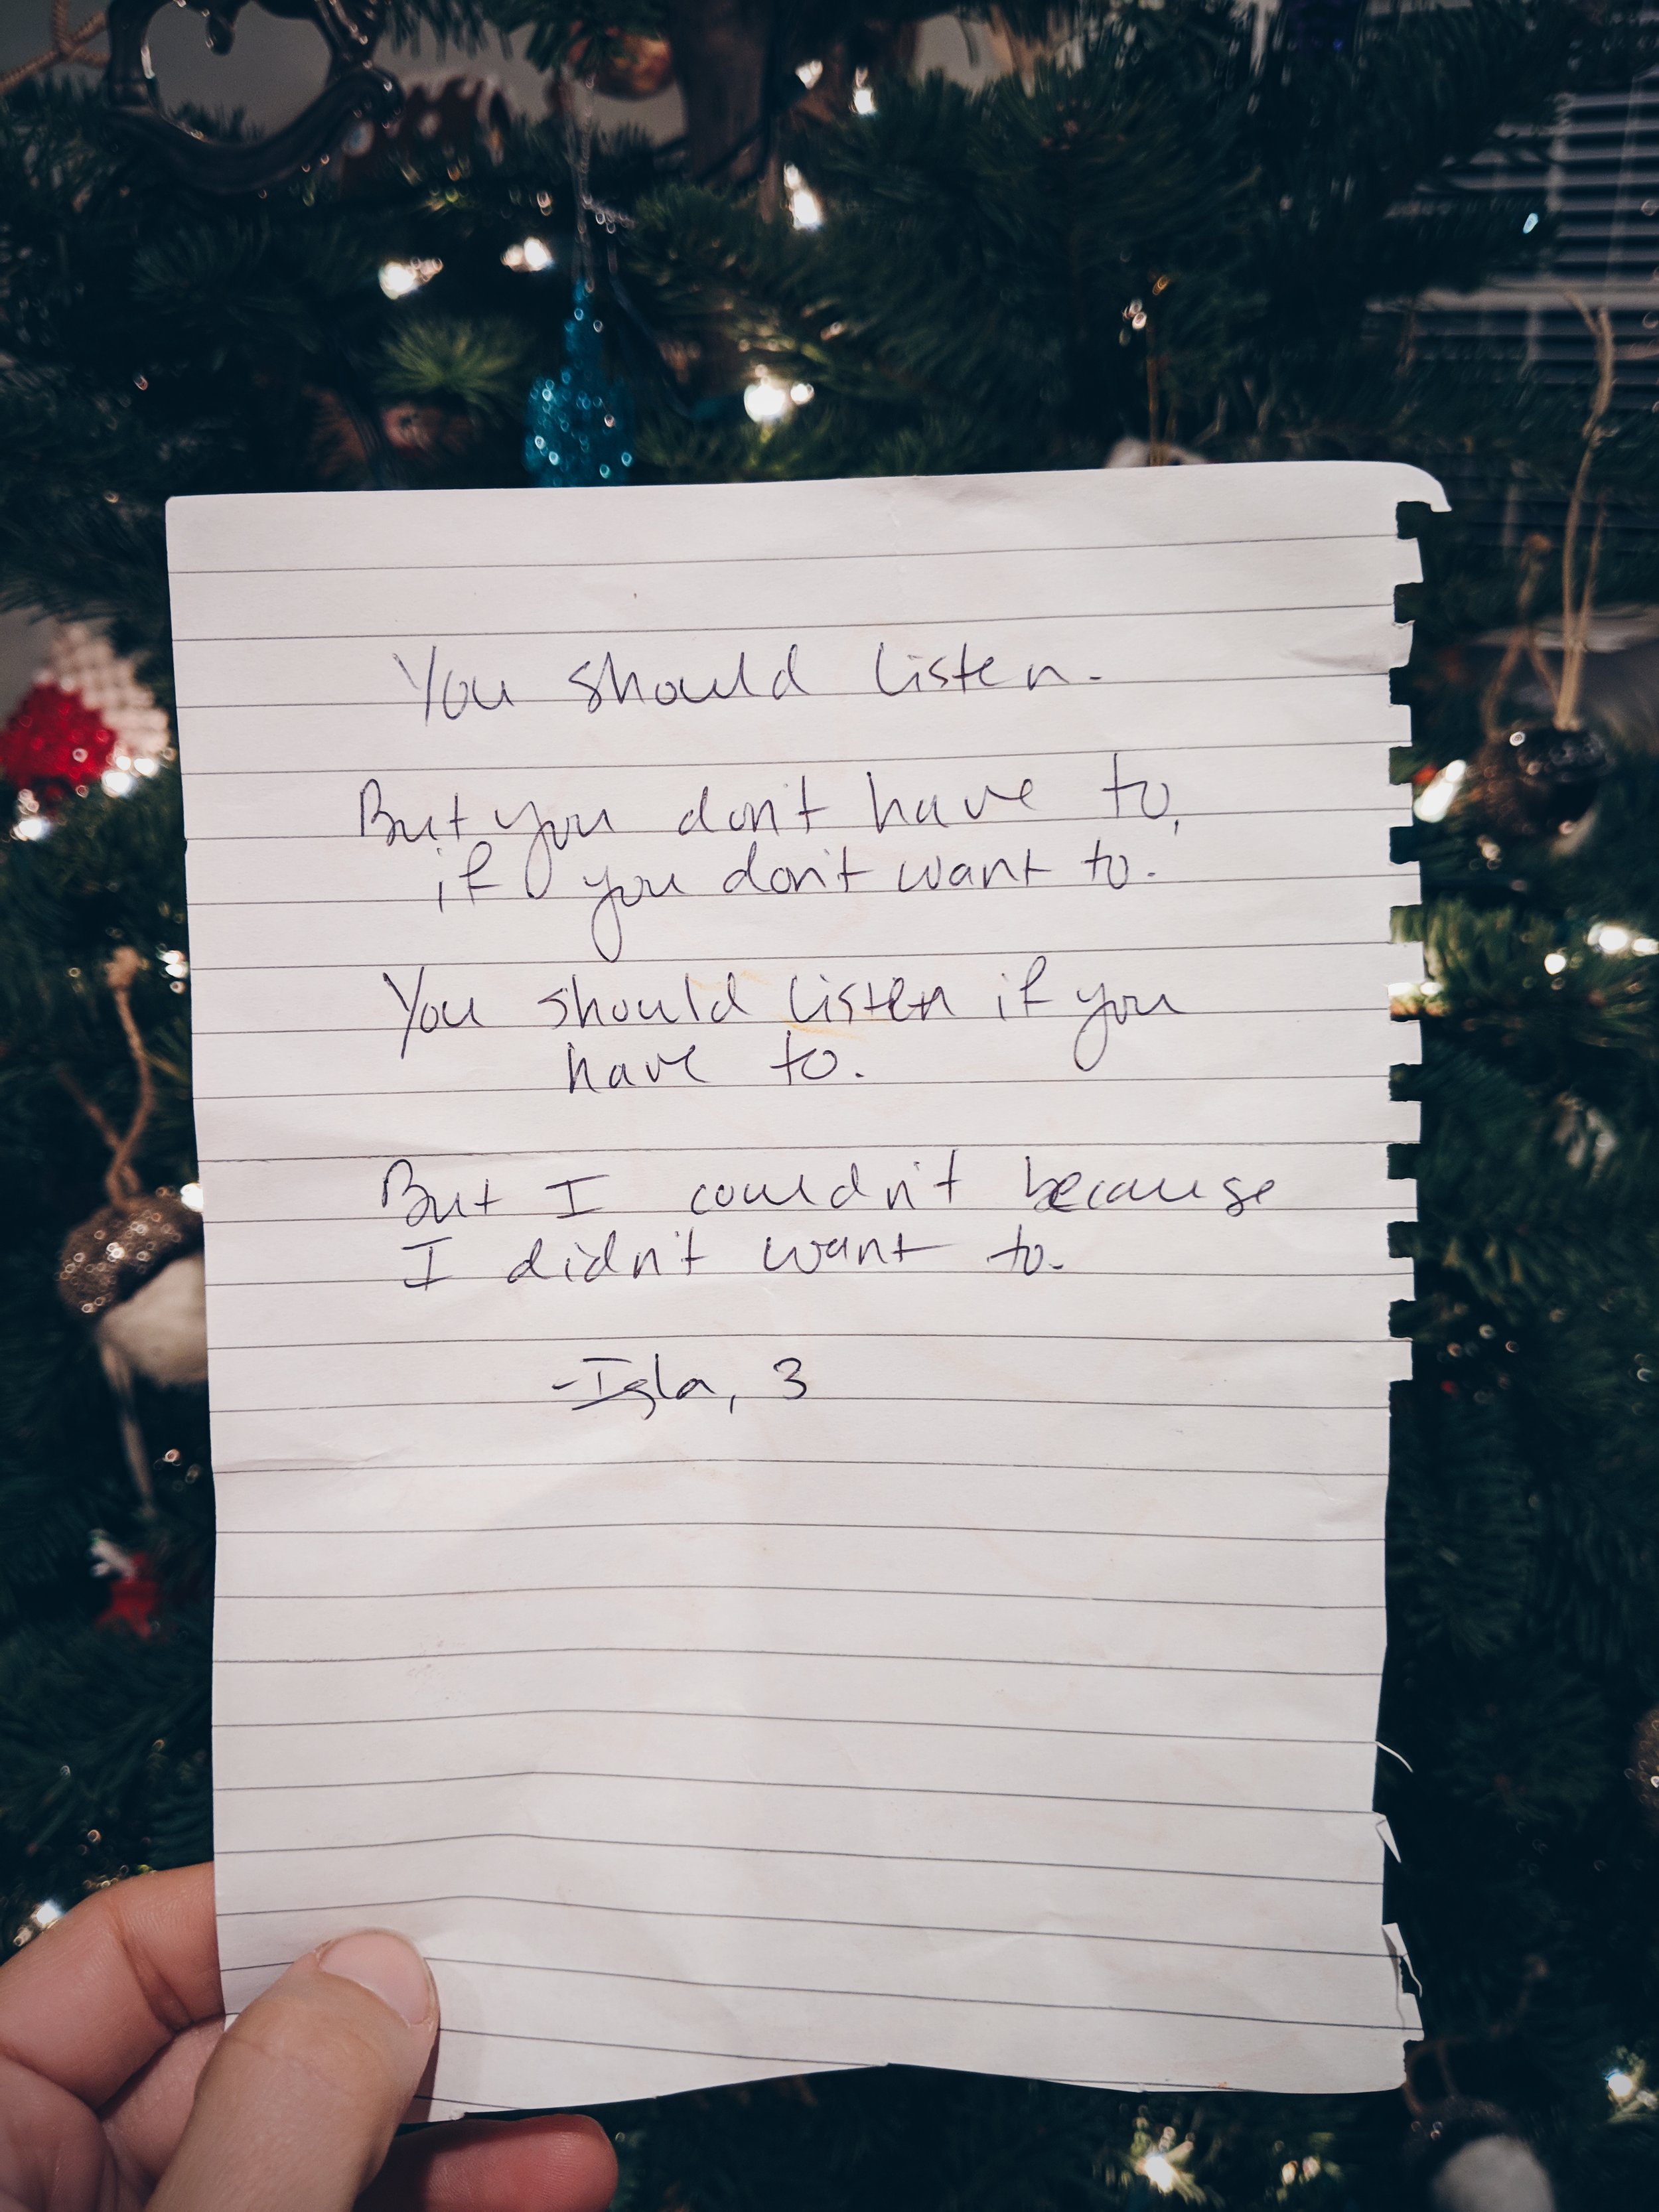 You should listen.
But you don't have to,
if you don't want to.
You should listen if you
have to.
But I couldn't because
I didn't want to.
-Isla, 3